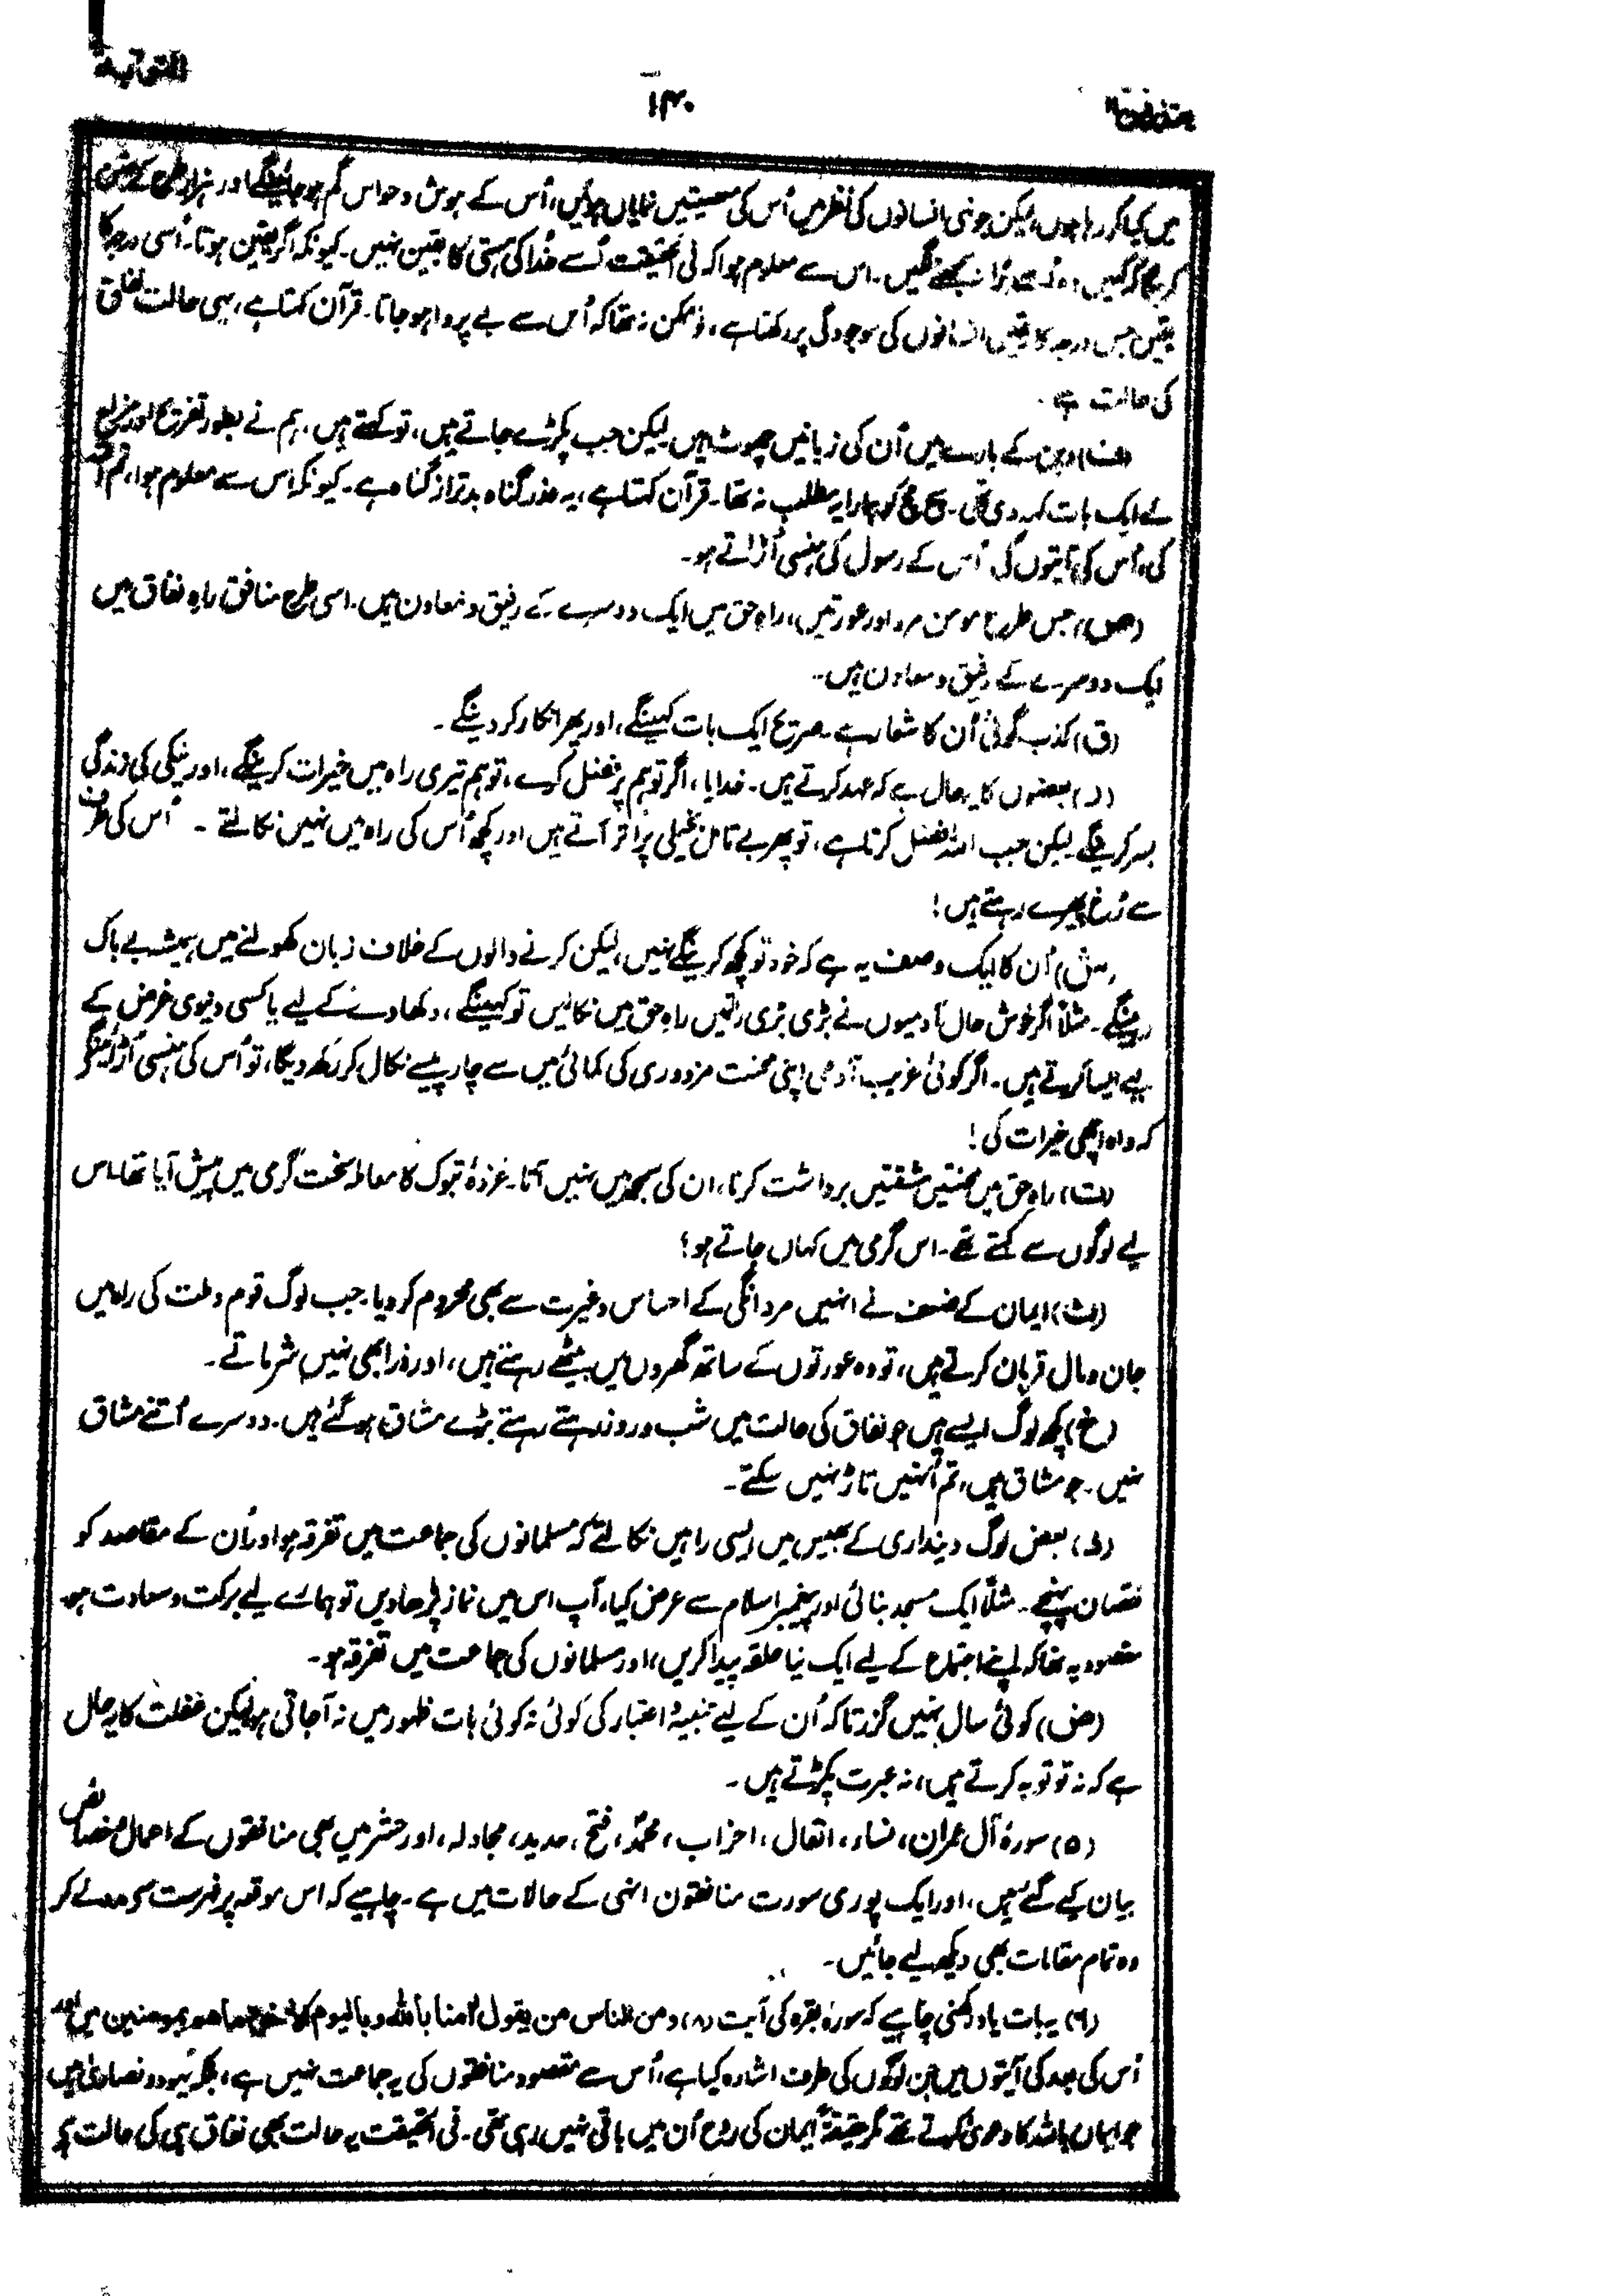 التوبة
۱۴۰
میں کیا کر رہا ہوں، لیکن جونہی انسانوں کی نظر میں اُس کی معصیتیں نمایاں ہوئیں، اُس کے ہوش و حواس گم ہو جائینگے اور ہزار طرح کے جتن
کریگا کہ کہیں وہ اُسے بُرا نہ سمجھنے لگیں۔ اس سے معلوم ہوا کہ فی الحقیقت اُسے خدا کی ہستی کا یقین نہیں۔ کیونکہ اگر یقین ہوتا۔ اُسی درجہ کا
یقین جس درجہ کا یقین انسانوں کی موجودگی پر رکھتا ہے، تو ممکن نہ تھا کہ اُس سے بے پروا ہو جاتا۔ قرآن کہتا ہے، یہی حالت نفاق
کی حالت ہے۔
(ف) دین کے بارے میں اُن کی زبانیں چھوٹ ہیں لیکن جب پکڑے جاتے ہیں، تو کہتے ہیں، ہم نے بطور تفریح اور مزاح
کے ایک بات کہہ دی تھی۔ سچ مچ کو ہمارا یہ مطلب نہ تھا۔ قرآن کہتا ہے، یہ عذر گناہ بدتر از گناہ ہے۔ کیونکہ اس سے معلوم ہوا، تم اللہ
کی، اُس کی آیتوں کی اُس کے رسول کی ہنسی اُڑاتے ہو۔
(ص) جس طرح مومن مرد اور عورتیں، راہ حق میں ایک دوسرے کے رفیق و معاون ہیں۔ اسی طرح منافق راہِ نفاق میں
ایک دوسرے کے رفیق و معاون ہیں۔
(ق) کذب گوئی اُن کا شعار ہے۔ صریح ایک بات کہینگے، اور پھر انکار کر دینگے۔
(ر) بعضوں کا یہ حال ہے کہ عہد کرتے ہیں۔ خدایا، اگر تو ہم پر فضل کرے، تو ہم تیری راہ میں خیرات کرینگے، اور نیکی کی زندگی
بسر کرینگے لیکن جب اللہ فضل کرتا ہے، تو پھر بے تامل بخیلی پر اُتر آتے ہیں اور کچھ اُس کی راہ میں نہیں نکالتے۔ اُس کی طرف
سے رُخ پھیرے رہتے ہیں!
(ش) اُن کا ایک وصف یہ ہے کہ خود تو کچھ کرینگے نہیں، لیکن کرنے والوں کے خلاف زبان کھولنے میں ہمیشہ بے باک
رہینگے۔ مثلاً اگر خوش حال آدمیوں نے بڑی بڑی رقمیں راہِ حق میں نکالیں تو کہینگے، دکھاوے کے لیے یا کسی دنیوی غرض کے
لیے ایسا کرتے ہیں۔ اگر کوئی غریب آدمی اپنی محنت مزدوری کی کمائی میں سے چار پیسے نکال کر رکھ دیگا، تو اُس کی ہنسی اُڑائینگے
کہ واہ اچھی خیرات کی!
(ت) راہ حق میں محنتیں مشقتیں برداشت کرنا، ان کی سمجھ میں نہیں آتا۔ غزوۂ تبوک کا معاملہ سخت گرمی میں پیش آیا تھا۔ اس
لیے لوگوں سے کہتے تھے۔ اس گرمی میں کہاں جاتے ہو؟
(ث) ایمان کے ضعف نے انہیں مردانگی کے احساس و غیرت سے بھی محروم کر دیا۔ جب لوگ قوم و ملت کی راہ میں
جان و مال قربان کرتے ہیں، تو وہ عورتوں کے ساتھ گھروں میں بیٹھے رہتے ہیں، اور ذرا بھی نہیں شرماتے۔
(خ) کچھ لوگ ایسے ہیں جو نفاق کی حالت میں شب و روز رہتے رہتے بڑے مشاق ہو گئے ہیں۔ دوسرے اُتنے مشاق
نہیں۔ جو مشاق ہیں، تم اُنہیں تاڑ نہیں سکتے۔
بعض لوگ دینداری کے بھیس میں ایسی راہیں نکالتے کہ مسلمانوں کی جماعت میں تفرقہ ہو اور اُن کے مقاصد کو
نقصان پہنچے۔ مثلاً ایک مسجد بنائی اور پیغمبر اسلام سے عرض کیا، آپ اس میں نماز پڑھا دیں تو ہمارے لیے برکت و سعادت ہو۔
مقصود یہ تھا کہ اپنے اجتماع کے لیے ایک نیا حلقہ پیدا کریں، اور مسلمانوں کی جماعت میں تفرقہ ہو۔
(ض) کوئی سال نہیں گزرتا کہ اُن کے لیے تنبیہ و اعتبار کی کوئی نہ کوئی بات ظہور میں نہ آ جاتی ہو لیکن غفلت کا یہ حال
ہے کہ نہ تو توبہ کرتے ہیں، نہ عبرت پکڑتے ہیں۔
(۵) سورۂ آل عمران، نساء، انفال، احزاب، محمد، فتح، حدید، مجادلہ، اور حشر میں بھی منافقوں کے اعمال و خصائص
بیان کیے گئے ہیں، اور ایک پوری سورت منافقون انہی کے حالات میں ہے۔ چاہیے کہ اس موقعہ پر فہرست سے مدد لے کر
وہ تمام مقامات بھی دیکھ لیے جائیں۔
(۶) یہ بات یاد رکھنی چاہیے کہ سورۂ بقرہ کی آیت (۸) ومن الناس من یقول اٰمنا باللہ وبالیوم الاٰخر وما ھم بمومنین میں اور
اُس کی بعد کی آیتوں میں جن لوگوں کی طرف اشارہ کیا ہے، اُس سے مقصود منافقوں کی یہ جماعت نہیں ہے، بلکہ یہود و نصاریٰ ہیں
جو ایمان باللہ کا دعویٰ کرتے تھے مگر حقیقۃً ایمان کی روح اُن میں باقی نہیں رہی تھی۔ فی الحقیقت یہ حالت بھی نفاق ہی کی حالت ہے